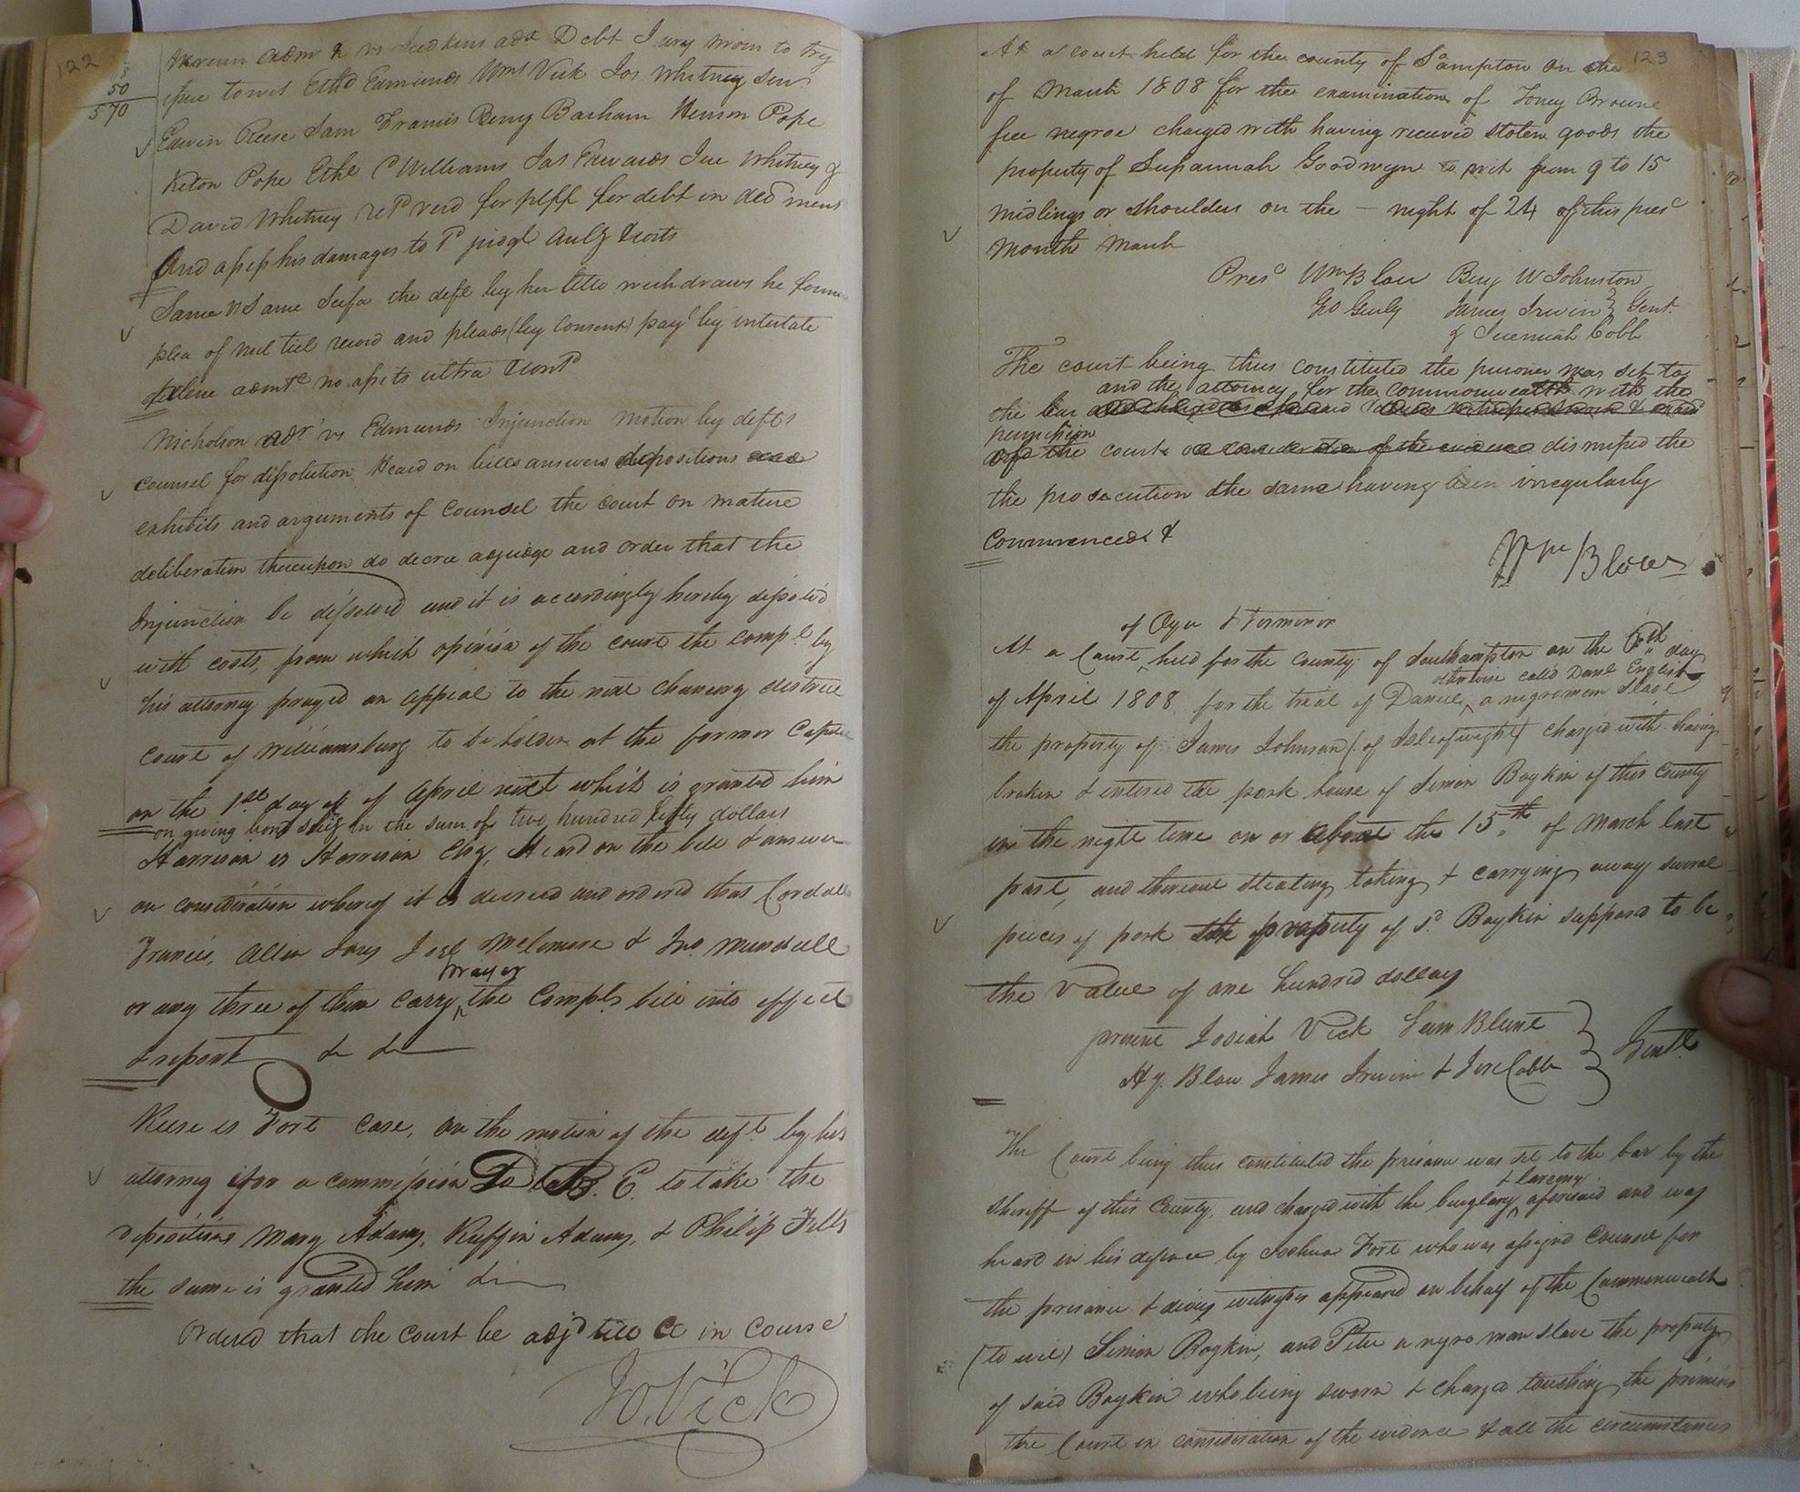 122
50
570
admr &c vs Judkins adx Debt Jury sworn to try
issue to wit Ethd Edmunds Wms Vick Jos Whitney Senr
Edwin Reese Sam Francis Benj Barham Henson Pope
Keton Pope Ethd C Williams Jas Edwards Jue Whitney &
David Whitney retd verd for plff for debt in decl ment
And assess his damages to 1d
Same vs Same Scifa the deft by her atto withdraws he former
plea of nul tiel record and pleads (by Consent) payt by intestate
admtd no assets ultra Contd
Nicholson adr vs Edmunds Injunction motion by defts
Counsel for dissolution Heard on bills answers depositions
exhibits and arguments of Counsel the court on mature
deliberation thereupon do decree adjudge and order that the
Injunction be dissolved and it is accordingly hereby dissolved
with costs, from which opinion of the court the complt by
his attorney prayed an appeal to the next Chancery district
Court of Williamsburg to be holden at the former Capitol
on the 1st day of of April next which is granted him
on giving bond & security in the sum of two hundred fifty dollars
Harrison vs Harrison Chy, Heard on the bill & answer
on consideration whereof it is decreed and ordered that Cordall
Francis, Allen Jones Joel McLemore & Jno. Mundall
prayer
or any three of them carry the Complts bill into effect
& report &c &c
Reese vs Fort Case, on the motion of the deft by his
attorney for a commission To B. E. to take the
depositions Mary Adams, Ruffin Adams, & Philip Felts
the same is granted him &c
Ordered that the court be adjd till Ct in Course
Jo. Vick
123
At a court held for the county of S.ampton on the
of March 1808 for the examination of Toney Browne
free negroe charged with having received stolen goods the
property of Susannah Goodwyn to wit from 9 to 15
midlings or shoulders on the — night of 24 of this prest
month March
Prest Wm Blow Benj W Johnston
Geo Gurley James Irwin } Gent.
& Jeremiah Cobb
The court being thus constituted the prisoner was set to
and the attorney for the commonwealth with the
the bar
permission
of the court on consideration of the evidence dismissed the
the prosecution the same having been irregularly
Commenced &
Wm Blow
of Oyer & Terminer
At a Court held for the County of Southampton on the day
otherwise called Danl English
of April 1808 for the trial of Daniel, a negroman slave
the property of James Johnson (of Isle of wight) charged with having
broken & entered the pork house of Simon Boykin of this County
in the night time on or about the 15th of March last
past, and thereout stealing, taking & carrying away several
pieces of pork the property of sd Boykin supposed to be
the value of one hundred dollars
present Josiah Vick Sam Blunt
Hy. Blow James Irwin & Jere Cobb } Gentn
The Court being thus constituted the prisoner was set to the bar by the
& larceny
sheriff of this County, and charged with the burglary aforesaid and was
heard in his defence by Joshua Fort who was assigned Counsel for
the prisoner & divers witnesses appeared on behalf of the Commonwealth
(to wit) Simon Boykin, and Peter a negro man slave the property
of said Boykin who being sworn & charged touching the premises
the Court in consideration of the evidence & all the circumstances